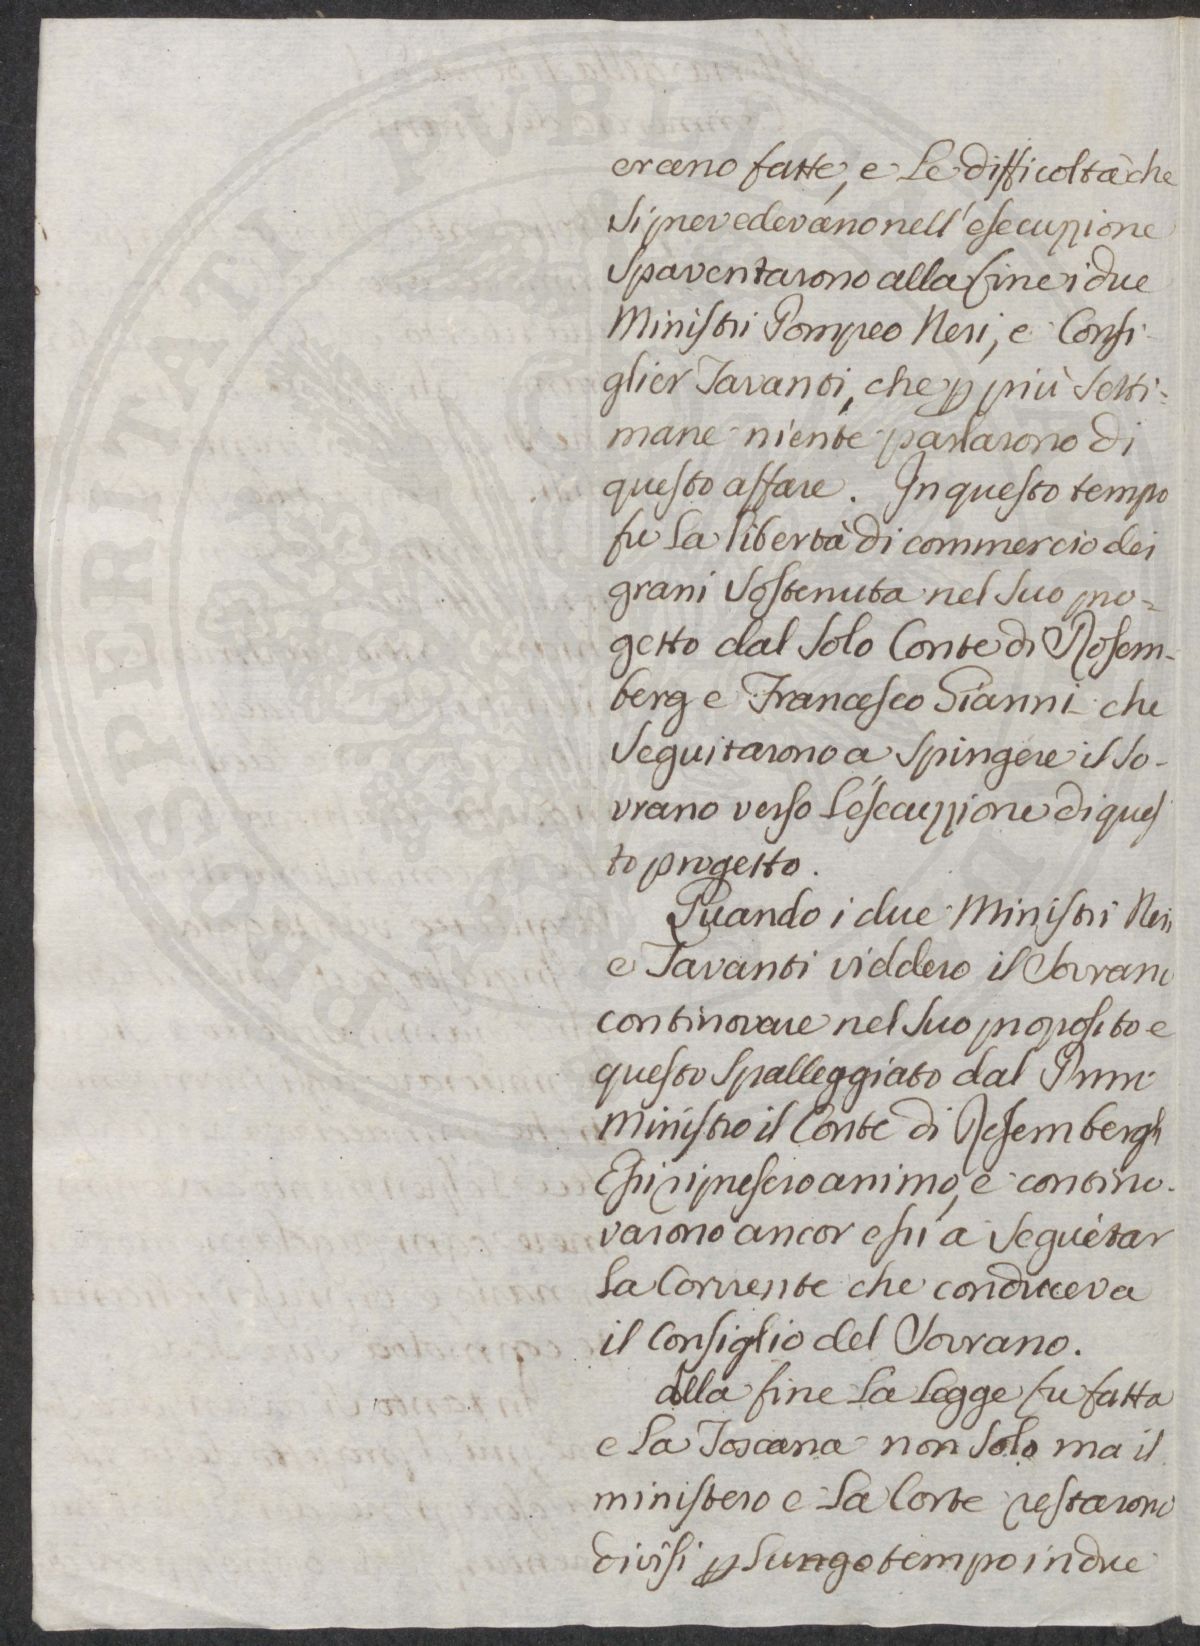 erano fatte, e le difficoltà che
si prevedevano nell'esecuzzione
spaventarono alla fine i due
Ministri Pompeo Neri, e Consi-
glier Tavanti, che p più setti=
mane niente parlarono di
questo affare. In questo tempo
fu la libertà di commercio dei
grani sostenuta nel suo pro=
getto dal solo Conte di Rosem-
berg e Francesco Gianni che
seguitarono a spingere il so-
vrano verso l'esecuzzione di ques
to progetto.
Quando i due Ministri Neri
e Tavanti viddero il Sovrano
continovare nel suo proposito e
questo spalleggiato dal Primo
Ministro il Conte di Rosembergh
Essi ripresero animo, e contino-
varono ancor essi a seguitar
la Corrente che conduceva
il Consiglio del Sovrano.
Alla fine la legge fu fatta
e la Toscana non solo ma il
ministero e la Corte restarono
divisi p lungo tempo in due
PROSPERITATI PUBLICAE